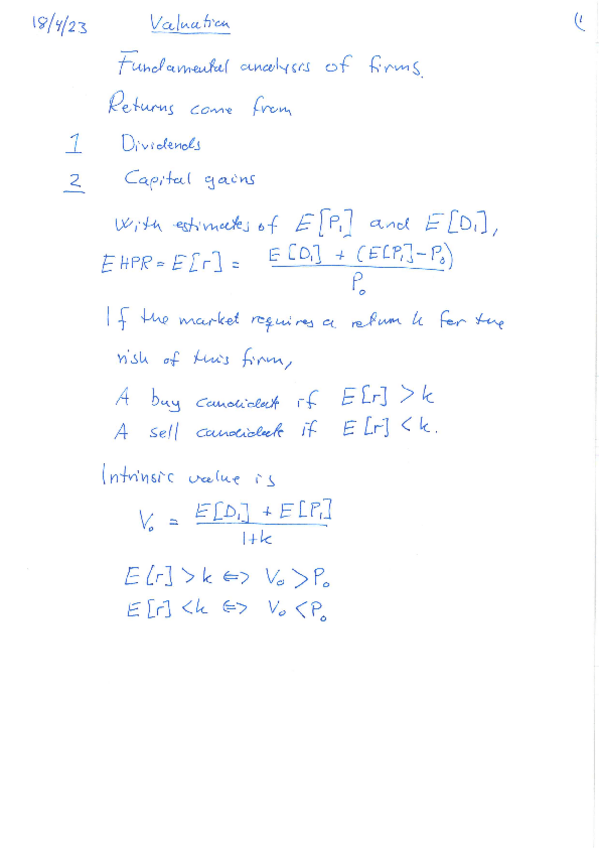 18/4/23 Valuation (1
Fundamental analysis of firms.
Returns come from
1 Dividends
2 Capital gains
With estimates of E[P₁] and E[D₁],
EHPR = E[r] = E[D₁] + (E[P₁]-P₀) / P₀
If the market requires a return k for the
risk of this firm,
A buy candidate if E[r] > k
A sell candidate if E[r] < k.
Intrinsic value is
V₀ = E[D₁] + E[P₁] / 1+k
E[r] > k ⇔ V₀ > P₀
E[r] < k ⇔ V₀ < P₀